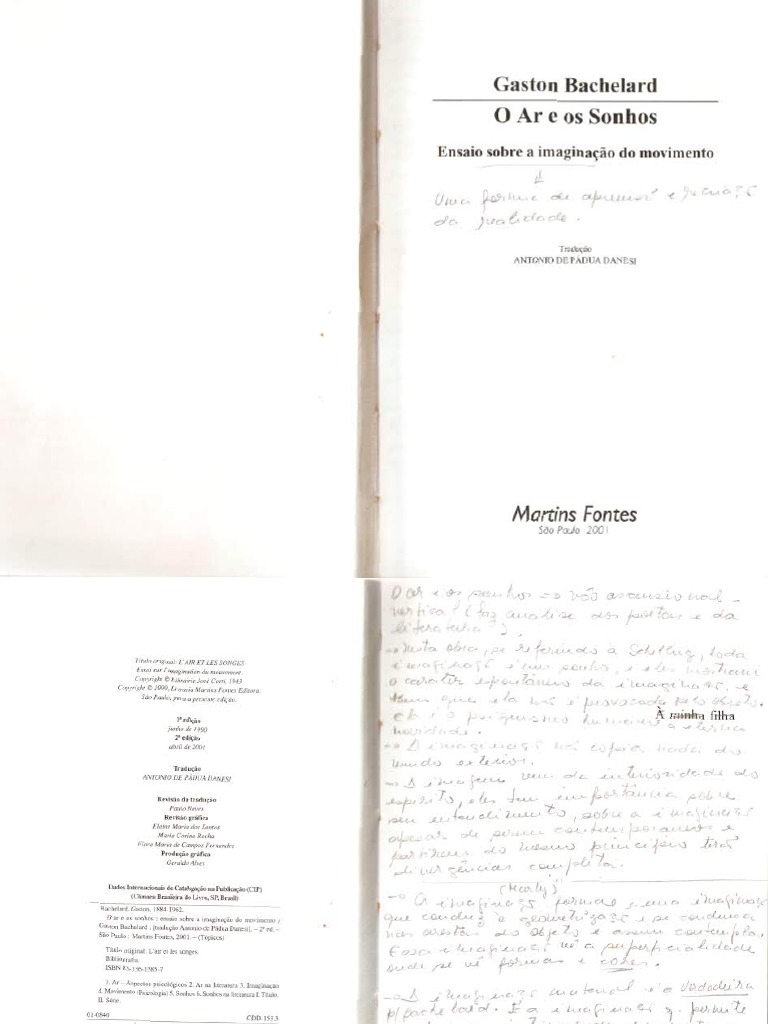 Gaston Bachelard
O Ar e os Sonhos
Ensaio sobre a imaginação do movimento
Uma forma de e
da realidade.
Tradução
ANTONIO DE PÁDUA DANESI
Martins Fontes
São Paulo 2001
Título original: L'AIR ET LES SONGES
Essai sur l'imagination du mouvement.
Copyright © Librairie José Corti, 1943
Copyright © 1990, Livraria Martins Fontes Editora.
São Paulo, para a presente edição.
1ª edição
junho de 1990
2ª edição
abril de 2001
Tradução
ANTONIO DE PÁDUA DANESI
Revisão da tradução
Paulo Neves
Revisão gráfica
Elaine Maria dos Santos
Maria Corina Rocha
Flora Maria de Campos Fernandes
Produção gráfica
Geraldo Alves
Dados Internacionais de Catalogação na Publicação (CIP)
(Câmara Brasileira do Livro, SP, Brasil)
Bachelard, Gaston, 1884-1962.
O ar e os sonhos : ensaio sobre a imaginação do movimento /
Gaston Bachelard ; [tradução Antonio de Pádua Danesi]. – 2ª ed. –
São Paulo : Martins Fontes, 2001. – (Tópicos)
Título original: L'air et les songes.
Bibliografia.
ISBN 85-336-1385-7
1. Ar – Aspectos psicológicos 2. Ar na literatura 3. Imaginação
4. Movimento (Psicologia) 5. Sonhos 6. Sonhos na literatura I. Título.
II. Série.
01-0840 CDD-153.3
O ar e os sonhos => vôo ascensional –
vertical (faz análise dos poetas e da
literatura).
→ Nesta obra, se referindo a Schelling, toda
imaginaçã é um sonho, e eles mostram
o caráter espontâneo da imaginaçã, e
tem que ela não é provocada pelo objeto.
é o psiquismo humano a eterna
novidade.
À minha filha
→ A imaginaçã não copia nada do
mundo exterior.
→ A imagem vem da interioridade do
espírito, eles tem importância sobre
seu entendimento, sobre a imaginaçã
apesar de serem contemporâneos e
partirem do mesmo princípio
divergências completa.
→ A imaginaçã formal é uma imaginaçã
que conduz a geometrizaçã e se
nas do objeto e assim contemplar.
Essa imaginaçã vê a superficialidade
onde se vê formas e cores.
→ A imaginaçã material é a verdadeira
p/ Bachelard. É a imaginaçã q. permite